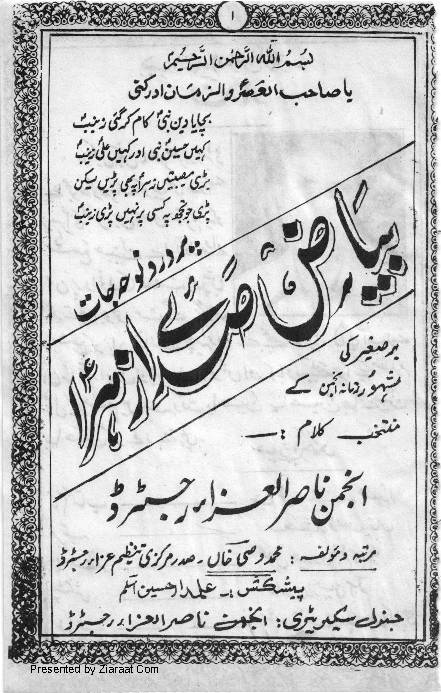 ۱
بسم الله الرحمن الرحیم
یا صاحب العصر والزمان ادرکنی
بچایا دین نبیؐ کام کر گئی زینبؑ
کہیں حسینؑ بنی اور کہیں علیؑ زینبؑ
بڑی مصیبتیں زہراؑ پہ بھی پڑیں لیکن
پڑی جو تجھ پہ کسی پر نہیں پڑی زینبؑ
پُر درد نوحہ جات
بیاض صدائے زہراؑ
برصغیر کی
مشہور زمانہ انجمن کے
منتخب کلام :-
انجمن ناصر العزاء رجسٹرڈ
مرتبہ و مؤلفہ : محمد وصی خاں ۔ صدر مرکزی تنظیم عزاء رجسٹرڈ
پیشکش :- علمدار حسین اسلم
جنرل سیکریٹری : انجمن ناصر العزاء رجسٹرڈ
Presented by Ziaraat.Com